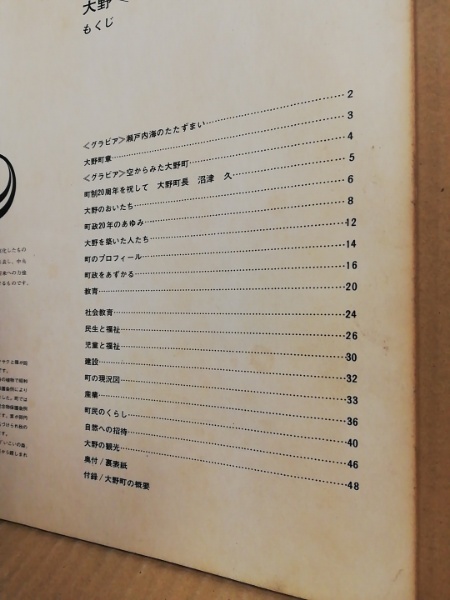 大野
もくじ
〈グラビア〉瀬戸内海のたたずまい……2
大野町章……3
〈グラビア〉空からみた大野町……4
町制20周年を祝して 大野町長 沼津 久……5
大野のおいたち……6
町政20年のあゆみ……8
大野を築いた人たち……12
町のプロフィール……14
町政をあずかる……16
教育……20
社会教育……24
民生と福祉……26
児童と福祉……30
建設……32
町の現況図……33
産業……36
町民のくらし……40
自然への招待……46
大野の観光……48
奥付/裏表紙
付録/大野町の概要